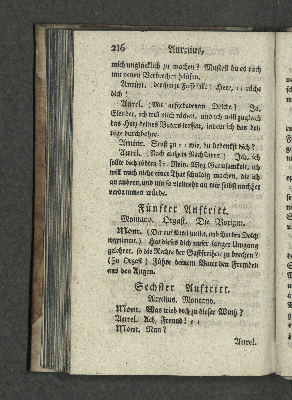 216 Aurelius,
mich unglücklich zu machen? Mußtest du es noch
mit neuen Verbrechen häufen.
Amint. (der ihm zu Fuße fällt) Herr, räche
dich!
Aurel. (Mit aufgehabenen Dolche) Ja,
Elender, ich will mich rächen, und ich will zugleich
das Herz deines Vaters treffen, indem ich das dei-
nige durchbohre.
Amint. Stoß zu: wie, du bedenkst dich?
Aurel. (Nach einigem Nachsinnen) Ich, ich
sollte dich tödten? Nein. Weg Grausamkeit, ich
will mich nicht einer That schuldig machen, die ich
an andern, und um so vielmehr an mir selbst noch
verdammen würde.
Fünfter Auftritt.
Montano. Orgast. Die Vorigen.
Mont. (Der auf Aurel zueilet, und ihm den Dolch
wegnimmt.) Hat dieses dich unser langer Umgang
gelehret, so die Rechte der Gastfreiheit zu brechen?
(Zu Orgast) Führe deinem Vater den Fremden
aus den Augen.
Sechster Auftritt.
Aurelius. Montano.
Mont. Was trieb dich zu dieser Wuth?
Aurel. Ach, Freund!
Mont. Nun?
Aurel.